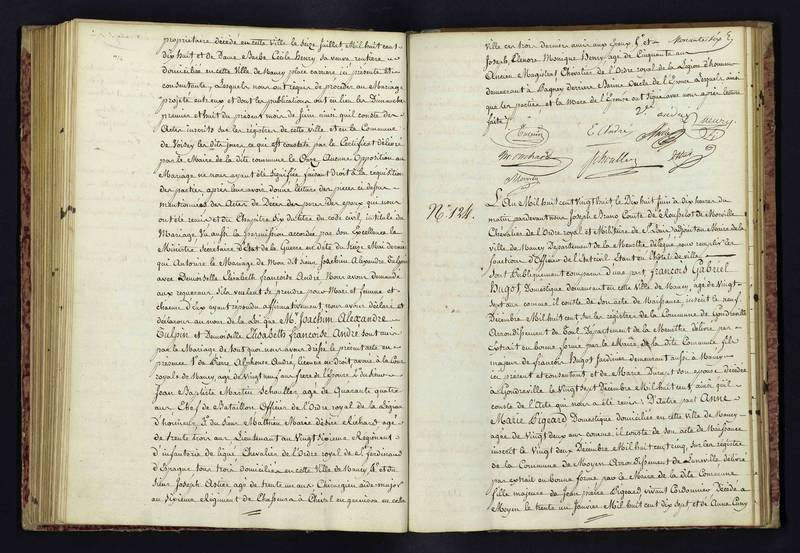 propriétaire décédé en cette ville le seize Juillet Mil huit cent
dix huit et de Dame Barbe Cécile Henry sa veuve rentière
domiciliée en cette Ville de Nancy place carrière ici présente et
consentante, Lesquels nous ont requis de procéder au Mariage
projeté entre eux et dont les publications ont eu lieu les Dimanches
premier et huit du présent mois de Juin ainsi qu'il conste des
Actes inscrits sur les registres de cette ville et en la Commune
de les dits jours, ce qui est constaté par le Certificat délivré
par le Maire de la dite commune le Onze, Aucune Opposition au
Mariage ne nous ayant été signifiée, faisant droit à la réquisition
des parties, après leur avoir donné lecture des pièces ci dessus
mentionnées des Actes de Décès des pères des époux qui nous
ont été remis et du Chapitre Six du titre du code civil, intitulé du
Mariage, Vu aussi la permission accordée par son Excellence le
Ministre Secrétaire d'Etat de la Guerre en date du seize Mai dernier
qui Autorise le Mariage de Mon dit sieur Joachim Alexandre Tulpin
avec Demoiselle Elisabeth françoise André. Nous avons demandé
aux requérans s'ils veulent se prendre pour Mari et femme et
chacun d'eux ayant répondu affirmativement, nous avons déclaré et
déclarons au nom de la Loi que Mr Joachim Alexandre
Tulpin et Demoiselle Elisabeth françoise André sont unis
par le Mariage de tout quoi nous avons dressé le présent acte en
présence 1° de Pierre Alphonse André, licencié en Droit avoué à la Cour
royale de Nancy, agé de Vingt neuf ans frère de l'Epouse 2° du sieur
Jean Baptiste Martin Schouller, agé de Quarante quatre
ans Chef de Bataillon Officier de l'Ordre royal de la Légion
d'honneur, 3° du sieur Mathieu Marie Désiré Richard agé
de trente trois ans Lieutenant au Vingt sixième Régiment
d'infanterie de ligne Chevalier de l'Ordre royal de St ferdinand
d'Espagne tous trois domiciliés en cette Ville de Nancy 4° et du
sieur Joseph Astier agé de trente un ans Chirurgien aide major
au Sixième Régiment de Chasseurs à Cheval en garnison en cette
ville ces trois derniers amis aux Epoux 5° et
Joseph Léonor Monique Henry agé de Cinquante ans
Ancien Magistrat, Chevalier de l'Ordre royal de la Légion d'honneur
demeurant à Pagney derrière Barine Oncle de l'Epouse Lesquels ainsi
que les parties et la Mère de l'Epouse ont signé avec nous après lecture
faite.
E. André
Schouller
N° 124.
L'An Mil huit cent Vingt huit le Dix huit Juin à dix heures du
matin pardevant nous Joseph Bruno Comte de
Chevalier de l'Ordre royal et Militaire de St Louis adjoint au Maire de la
ville de Nancy Département de la Meurthe délégué pour remplir les
fonctions d'Officier de l'état civil. Etant en l'hôtel de ville
Sont Publiquement comparus d'une part françois Gabriel
Hugot Domestique demeurant en cette ville de Nancy, agé de Vingt
sept ans comme il conste de son acte de Naissance, inscrit le neuf
Décembre Mil huit cent sur les registres de la Commune de Gondreville
Arrondissement de Toul Département de la Meurthe délivré par
Extrait en bonne forme par le Maire de la dite Commune fils
majeur de françois Hugot Jardinier demeurant aussi à Nancy
ici présent et consentant et de Marie son épouse, Décédée
à Gondreville le Vingt sept Décembre Mil huit cent ainsi qu'il
conste de l'Acte qui nous a été remis : D'autre part Anne
Marie Pigeard Domestique domiciliée en cette ville de Nancy
agée de Vingt deux ans comme il conste de son acte de Naissance
inscrit le Vingt deux Décembre Mil huit cent cinq, sur les registres
de la Commune de Moyen Arrondissement de Lunéville délivré
par extrait en bonne forme par le Maire de la dite Commune
fille majeure de Jean pierre Pigeard vivant Cordonnier Décédé à
Moyen le trente un Janvier Mil huit cent dix sept et de Anne Cuny